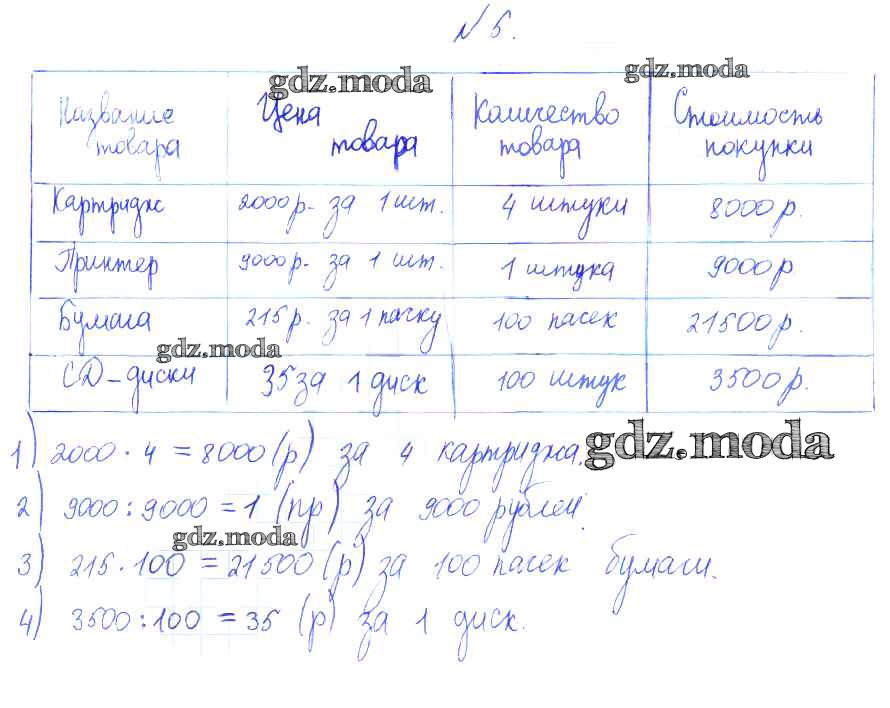 № 5.
gdz.moda
gdz.moda
Название товара Цена товара Количество товара Стоимость покупки
Картридж 2000р. за 1 шт. 4 штуки 8000р.
Принтер 9000р. за 1 шт. 1 штука 9000р
Бумага 215 р. за 1 пачку 100 пасек 21500р.
gdz.moda
CD-диски 35 за 1 диск 100 штук 3500р.
1) 2000 · 4 = 8000 (р) за 4 картриджа.
gdz.moda
2) 9000 : 9000 = 1 (пр) за 9000 рублей.
gdz.moda
3) 215 · 100 = 21500 (р) за 100 пасек бумаги.
4) 3500 : 100 = 35 (р) за 1 диск.